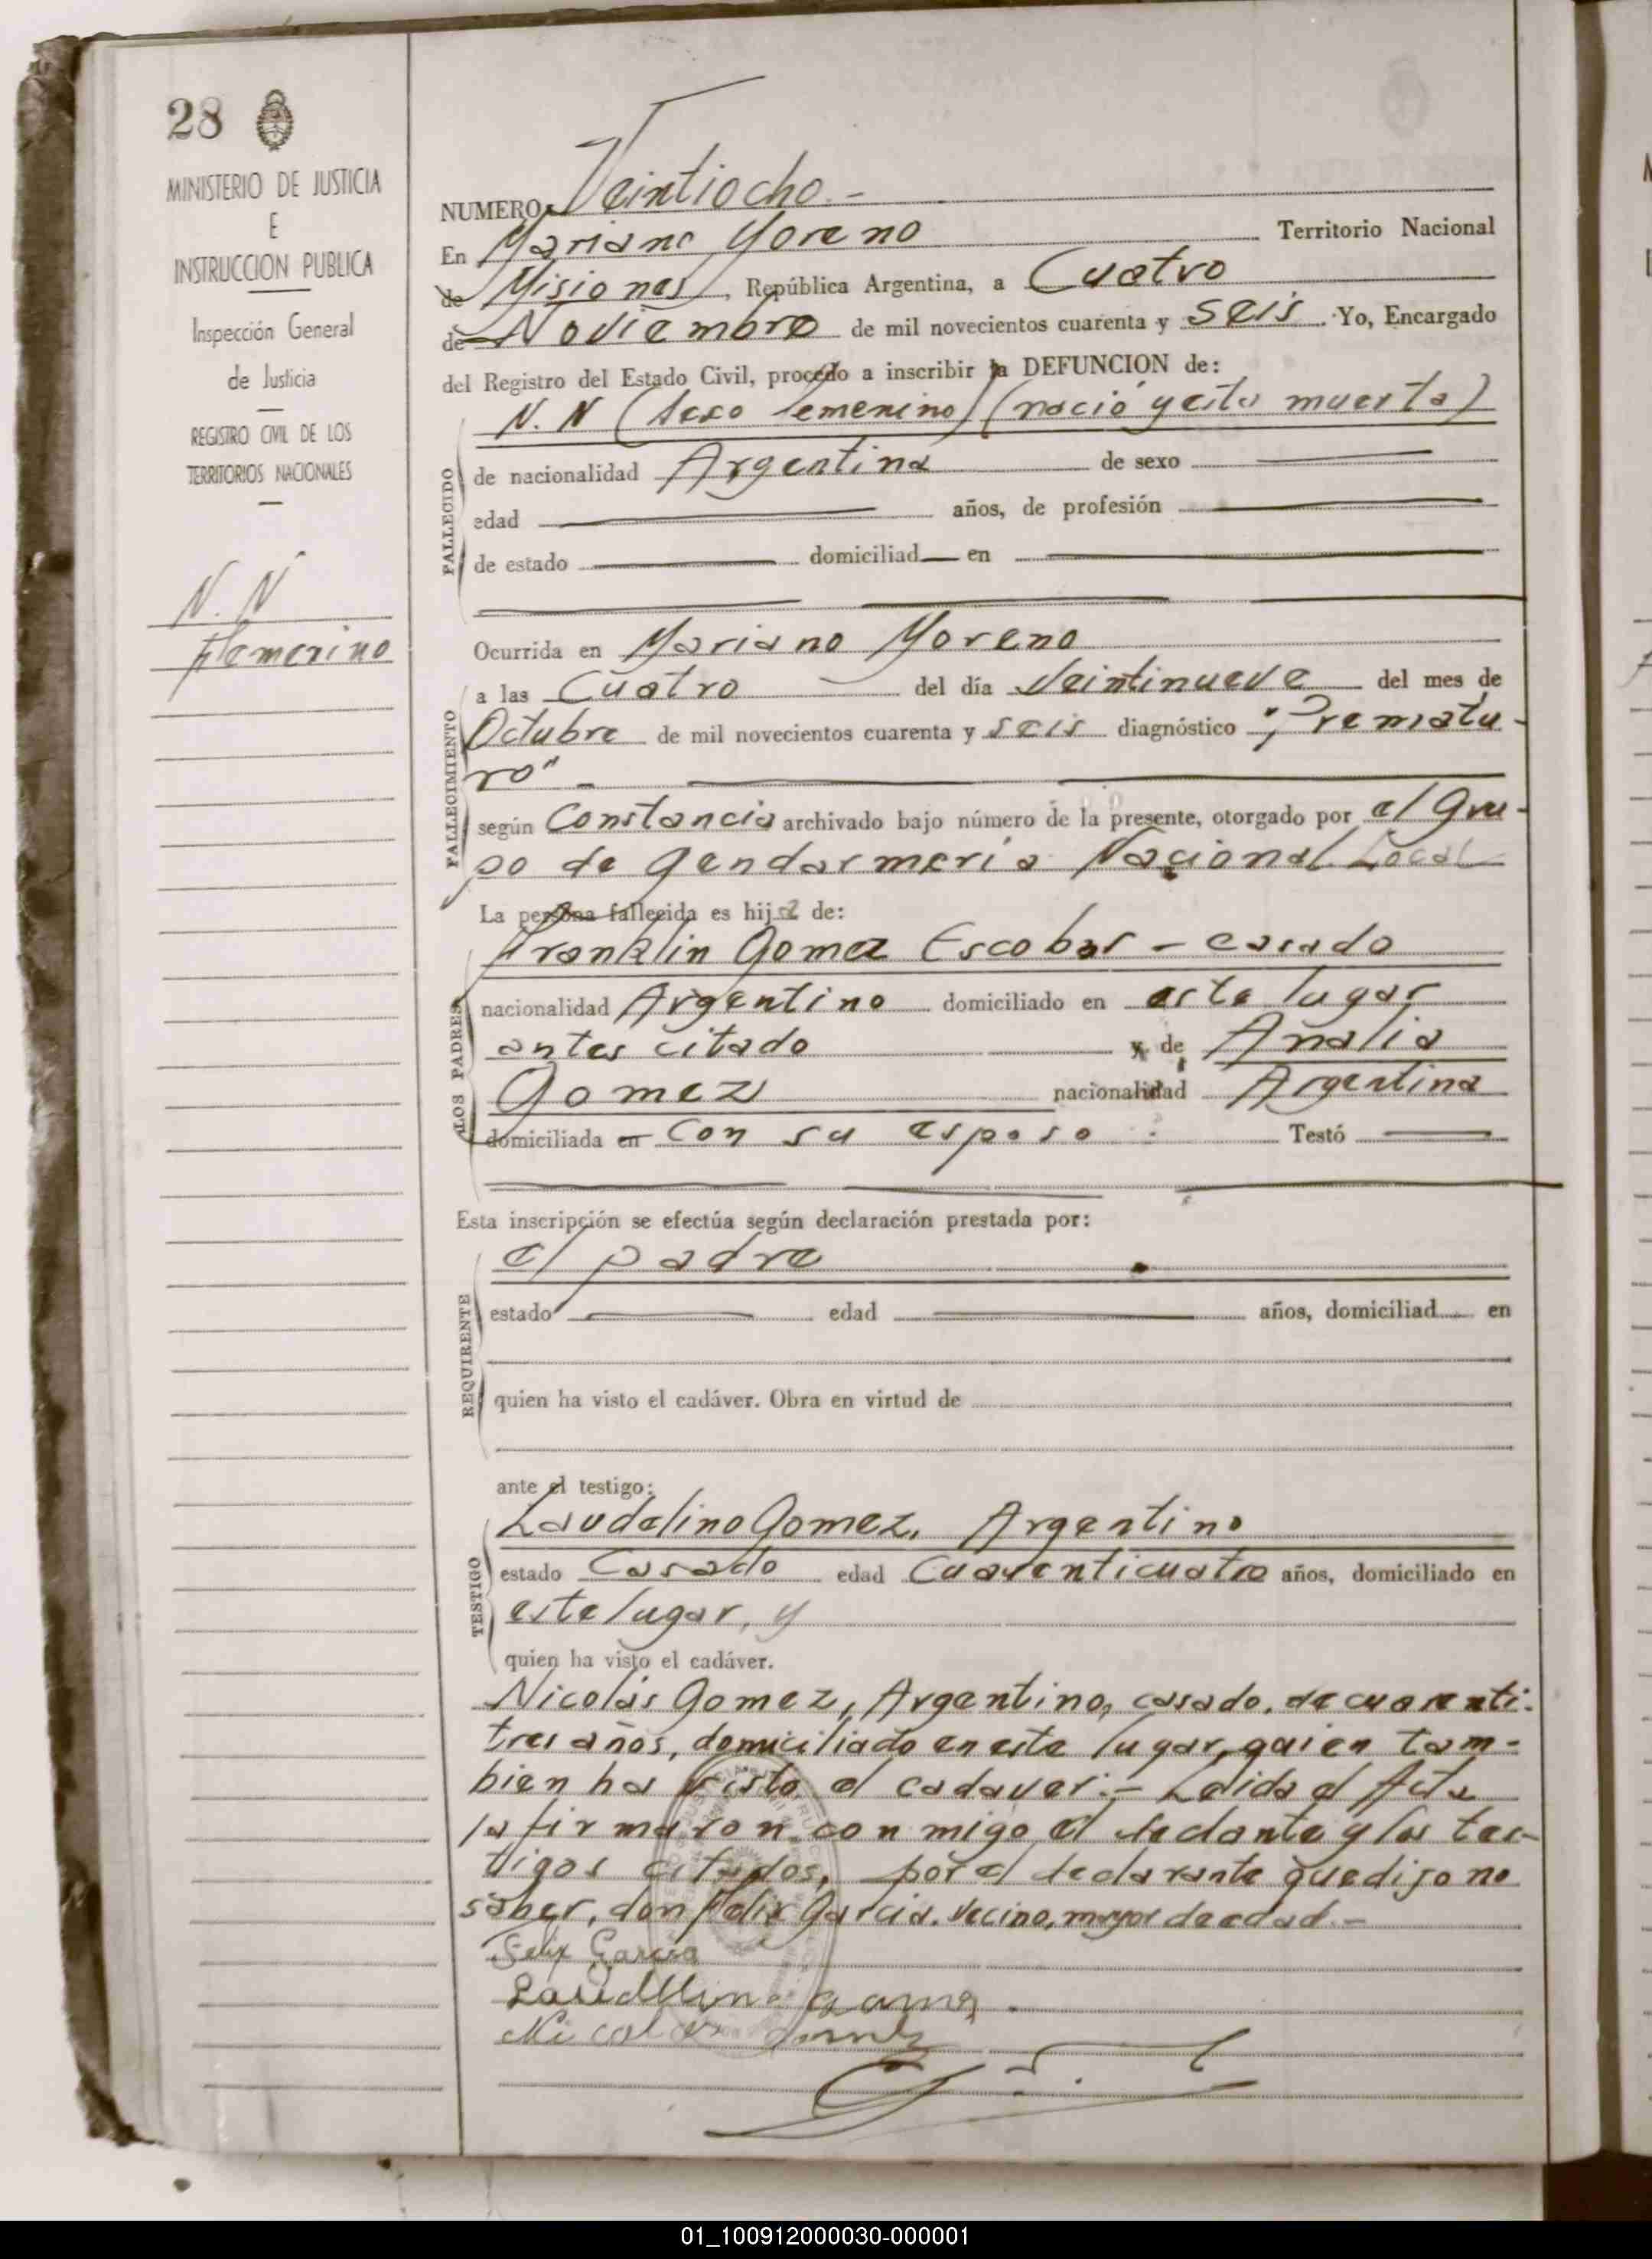 28
MINISTERIO DE JUSTICIA
E
INSTRUCCION PUBLICA
Inspección General
de Justicia
REGISTRO CIVIL DE LOS
TERRITORIOS NACIONALES
N. N
Femenino
NUMERO Veintiocho.-
En Mariano Moreno Territorio Nacional
de Misiones, República Argentina, a Cuatro
de Noviembre de mil novecientos cuarenta y seis. Yo, Encargado
del Registro del Estado Civil, procedo a inscribir la DEFUNCION de:
N. N (sexo femenino) (nació muerta)
FALLECIDO
de nacionalidad Argentina de sexo
edad años, de profesión
de estado domiciliad en
Ocurrida en Mariano Moreno
FALLECIMIENTO
a las Cuatro del día Veintinueve del mes de
Octubre de mil novecientos cuarenta y seis diagnóstico "Prematu-
ro" -
según Constancia archivado bajo número de la presente, otorgado por el Gru-
po de Gendarmeria Nacional Local
La persona fallecida es hija de:
LOS PADRES
Franklin Gomez Escobar - casado
nacionalidad Argentino domiciliado en este lugar
antes citado y de Analia
Gomez nacionalidad Argentina
domiciliada en con su esposo Testó
Esta inscripción se efectúa según declaración prestada por:
REQUIRENTE
el padre
estado edad años, domiciliad en
quien ha visto el cadáver. Obra en virtud de
ante el testigo:
TESTIGO
Laudelino Gomez, Argentino
estado Casado edad Cuarenticuatro años, domiciliado en
este lugar, y
quien ha visto el cadáver.
Nicolás Gomez, Argentino, casado, de cuarenti-
tres años, domiciliado en este lugar, quien tam-
bien ha visto el cadaver:- Leida el Acta
la firmaron conmigo el y los tes-
tigos citados, por el declarante que dijo no
saber, don Felix Garcia. Vecino, mayor de edad.-
Felix Garcia
Nicolas
01_100912000030-000001